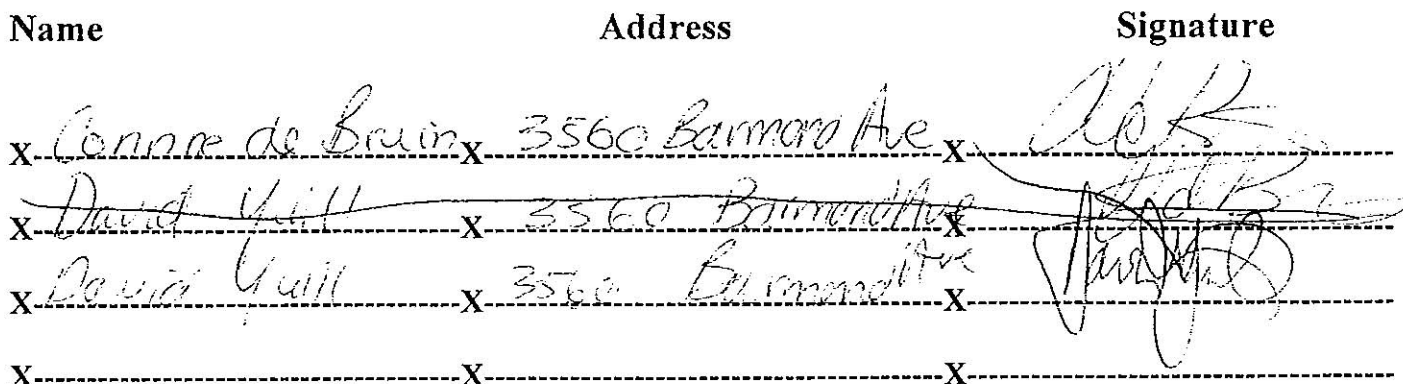 Name Address Signature
X Connie de Bruin X 3560 Barmond Ave X
X David Yuill X 3560 Barmond Ave X
X David Yuill X 3560 Barmond Ave X
X X X